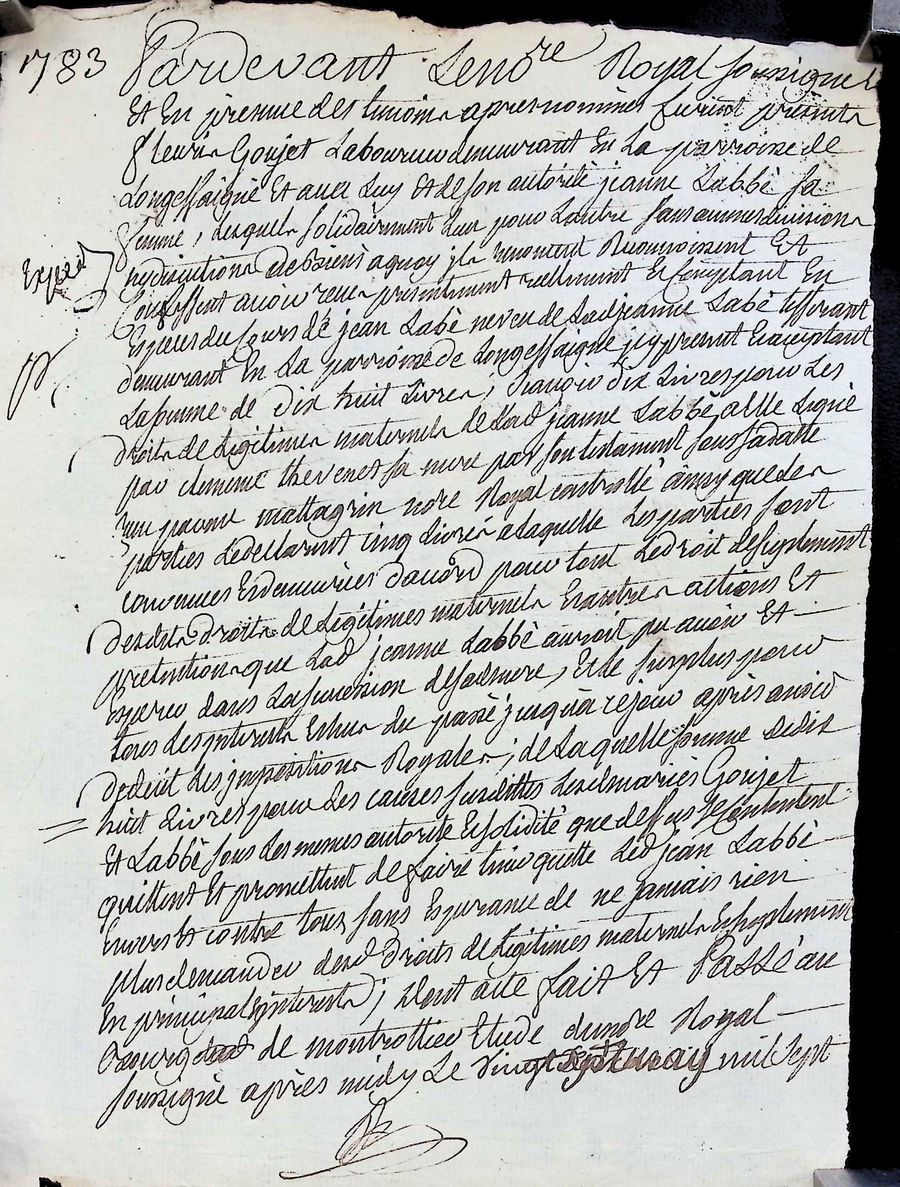 1783 Pardevant Le no.re Royal soussigné
Et En presence des temoins apres nommes furent presents
fleurie Goujet Laboureur demeurant En La parroisse de
Longessaigne Et avec Luy Et de son autorité jeanne Labbé sa
femme, Lesquels solidairement L'un pour L'autre sans aucunes divisions
ny discutions de biens a quoy ils renoncent Reconnoissent Et
Exped
Confessent avoir reçu presentement reellement Et Comptant En
Especes du Cours de jean Labé neveu de Lad jeanne Labé tisserant
demeurant En La parroisse de Longessaigne icy present Et acceptant
La somme de dix huit Livres, sçavoir dix Livres pour Les
droits de Légitimes maternels de Lad jeanne Labbé, a Elle Légué
par clemence thevenet sa mere par son testament sous sa datte
reçu par me mattagrin no.re Royal controllé a ce que les
parties declarent cinq Livres a laquelle Les parties sont
convenues Et demeurées d'accord pour tout Le droit de suplement
desdits droits de Légitimes maternels Et autres actions Et
pretentions que Lad jeanne Labbé auroit pu avoir Et
Esperer dans La succession de sad mere, Et Le surplus pour
tous Les interests Echus du passé jusqu'a ce jour après avoir
deduit Les impositions Royales; de Laquelle somme de dix
huit Livres pour Les causes susdittes Lesd mariés Goujet
Et Labbé sous Les memes autorité Et solidité que dessus se Contentent
quittent Et promettent de faire tenir quitte Led jean Labbé
Envers Et contre tous sans Esperance de ne jamais rien
plus demander desd droits de Légitimes maternels Et suplement
En principal Et interests; dont acte fait Et Passé au
Bourg de montrottier Etude du no.re Royal
soussigné après midy Le vingt mil sept